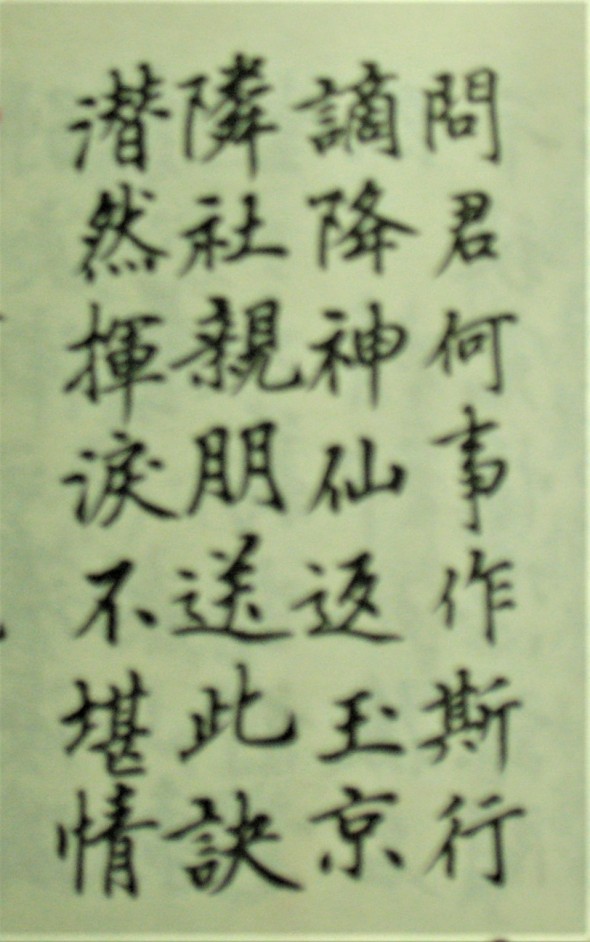 問君何事作斯行
謫降神仙返玉京
隣社親朋送此訣
潜然揮淚不堪情